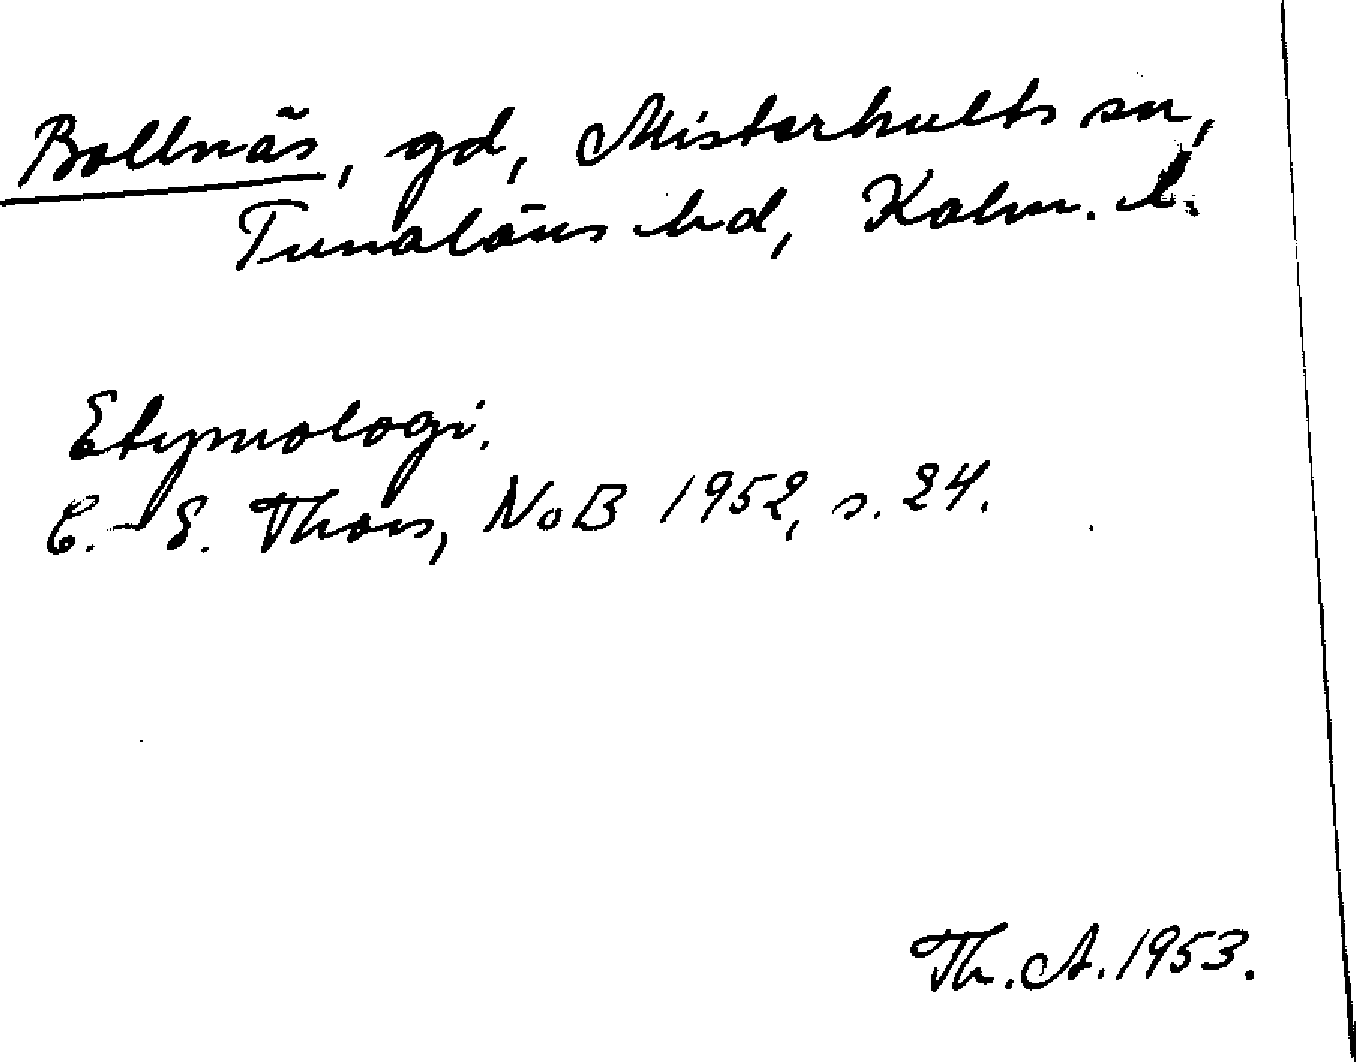 Bollnäs, gd, Misterhults sn,
Tunaläns hd, Kalm. l.
Etymologi.
C.-E. Thors, NoB 1952, s. 24.
Th. A. 1953.